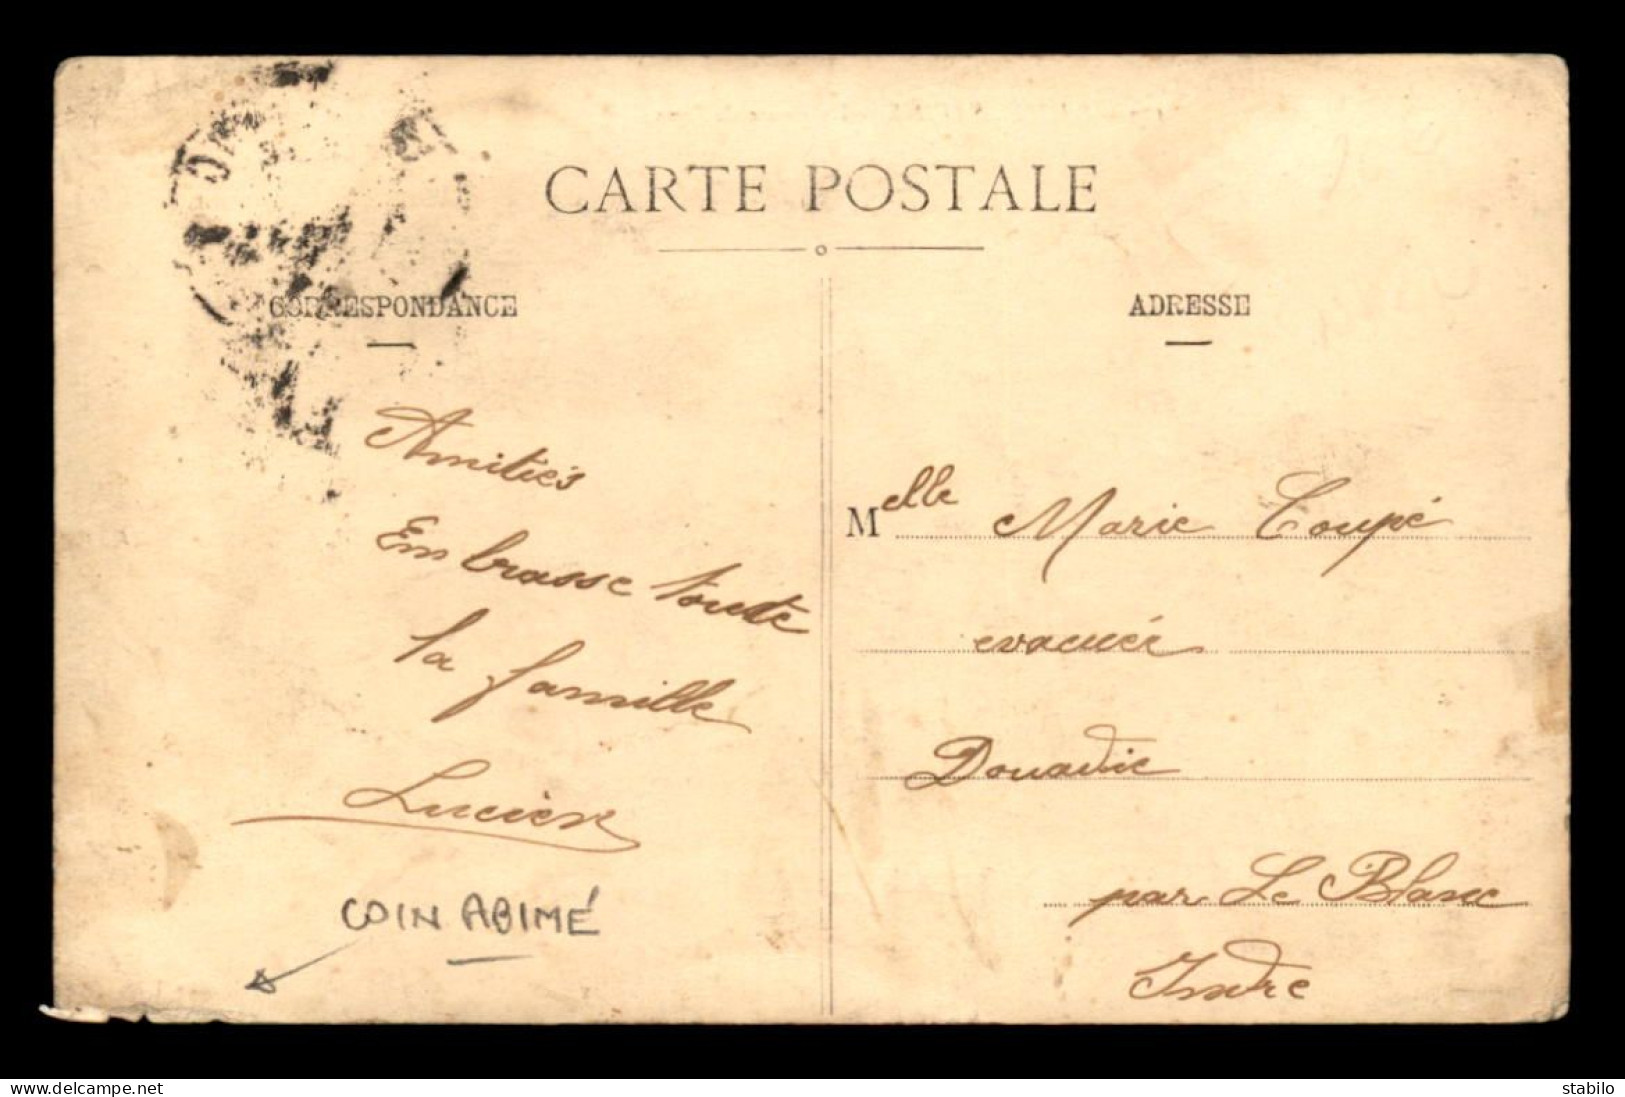 CARTE POSTALE
CORRESPONDANCE
ADRESSE
Amitiés
Embrasse toute
la famille
Lucien
COIN ABIMÉ
Melle Marie Coupé
evacuée
Douadic
par Le Blanc
Indre
delcampe.net
stabilo